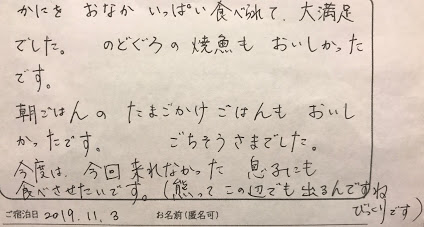 かにを おなかいっぱい食べられて、大満足
でした。 のどぐろの焼魚も おいしかった
です。
朝ごはんの たまごかけごはんも おいし
かったです。 ごちそうさまでした。
今度は、今回来れなかった 息子にも
食べさせたいです。(熊って この辺でも出るんですね
びっくりです)
ご宿泊日 2019.11.3 お名前(匿名可)